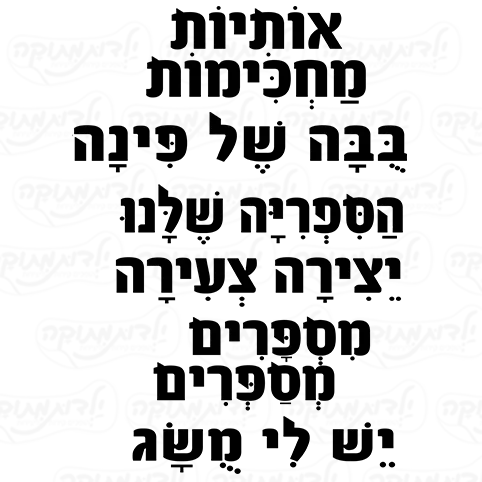 אוֹתִיּוֹת
מַחְכִּימוֹת
בֻּבָּה שֶׁל פִּינָה
הַסִּפְרִיָּה שֶׁלָּנוּ
יֵצִירָה צְעִירָה
מִסְפָּרִים
מְסַפְּרִים
יֵשׁ לִי מֻשָּׂג